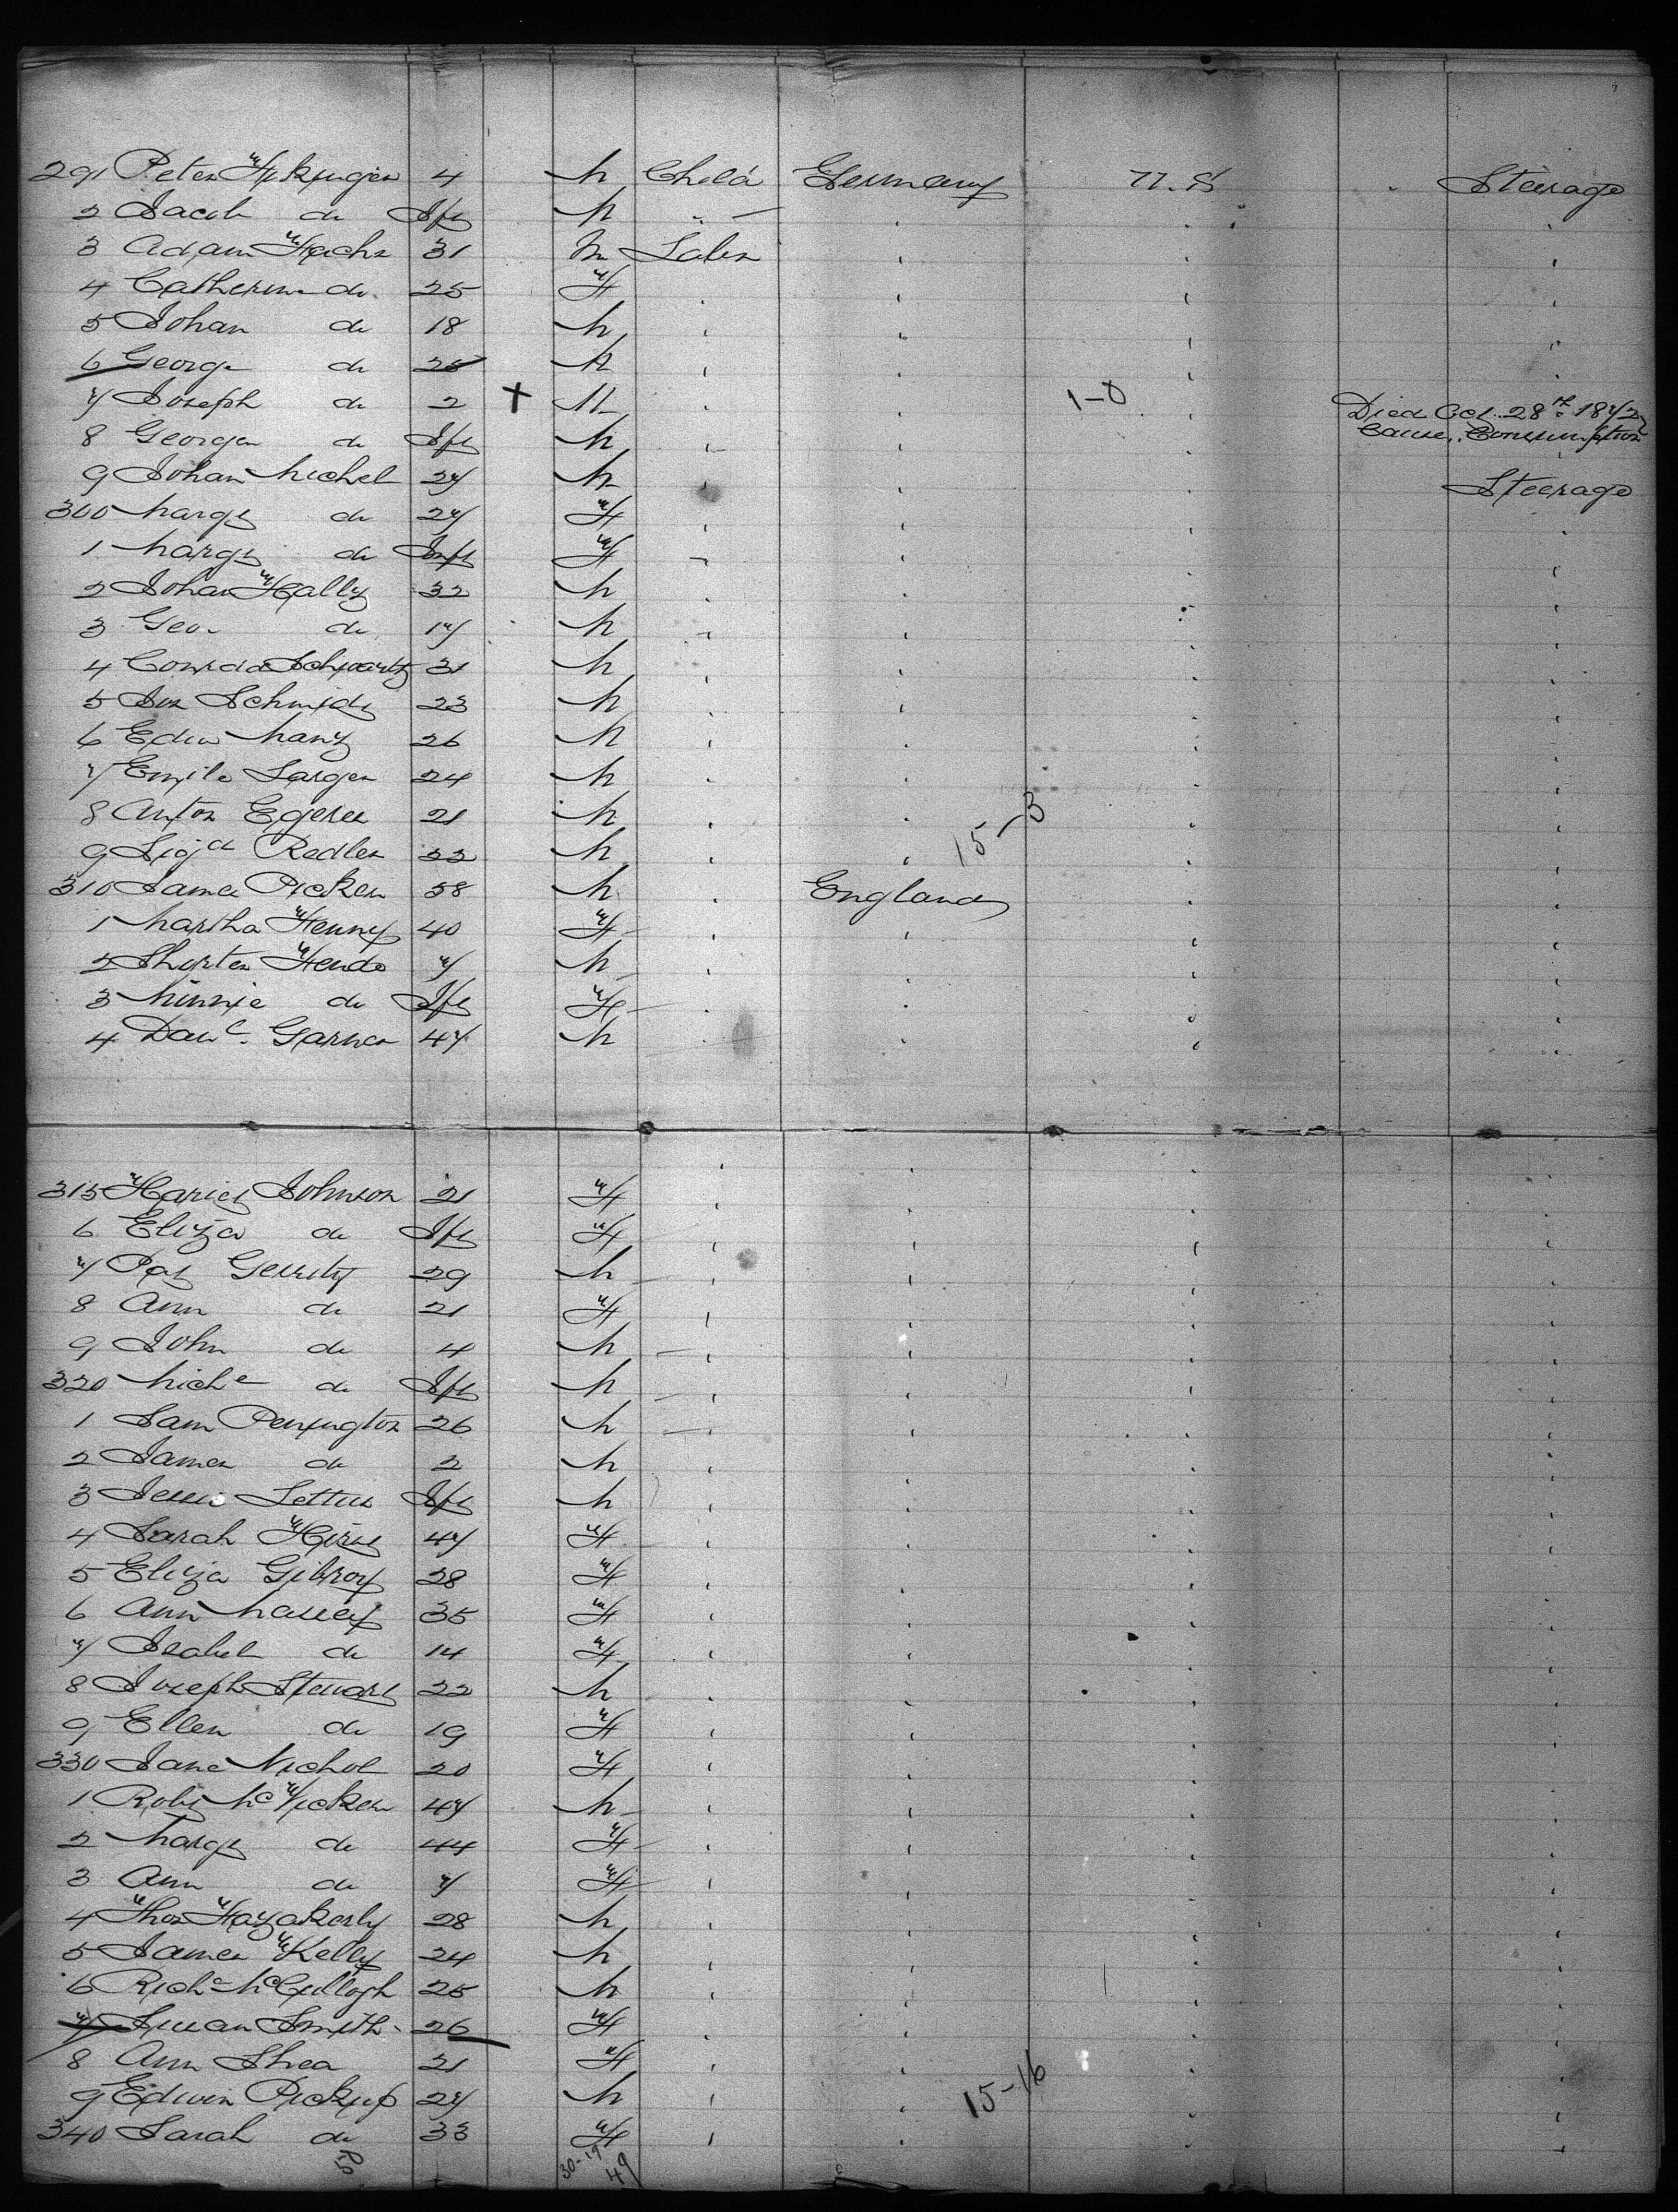 291 Peter 4 M Child Germany U.S. Steerage
2 Jacob do Ift M " "
3 Adam Hachs 31 M Labr " " "
4 Catherine do. 25 F " " " "
5 Johan do 18 M " " " "
6 George do 25 M " " "
7 Joseph do 2 + M " " 1-0 Died Oct. 28th 1872
Cause. Consumption
8 George do Ift M " " "
9 Johan Michel 27 M " " " Steerage
300 Margt do 27 F " " " "
1 Margt do Inft F " " " "
2 Johan Hally 32 M " " " "
3 Geo. do 17 M " " " "
4 Conrad Schwartz 31 M " " " "
5 Jos Schmidt 23 M " " " "
6 Edw Mantz 26 M " " " "
7 Emile Sarger 24 M " " " "
8 Anton Egeree 21 M " " " "
9 Sigd Redler 22 M " " 15-3 " "
310 James Picken 58 M " England " "
1 Martha Henny 40 F " " " "
2 Hendo 7 M " " " "
3 Minnie do Ift F " " " "
4 Danl. Garner 47 M " " " "
315 Hariet Johnson 21 F " " " "
6 Eliza do Ift F " " " "
7 Pat Gerrity 29 M " " " "
8 Ann do 21 F " " " "
9 John do 4 M " " " "
320 Michl do Ift M " " " "
1 Sam Penington 26 M " " " "
2 James do 2 M " " " "
3 Jessie Ift M " " " "
4 Sarah Hirst 47 F " " " "
5 Eliza Gilroy 28 F " " " "
6 Ann Massey 35 F " " " "
7 Isabel do 14 F " " " "
8 Joseph Stewart 22 M " " " "
9 Ellen do 19 F " " " "
330 Jane Nichol 20 F " " " "
1 Robt McVicker 47 M " " " "
2 Margt do 44 F " " " "
3 Ann do 7 F " " " "
4 Thos 28 M " " " "
5 James Kelly 24 M " " " "
6 Richd McCullogh 25 M " " " "
7 Susan Smith 26 F " " " "
8 Ann Shea 21 F " " " "
9 Edwin Pickup 27 M " " 15-16 " "
340 Sarah do 33 F " " " "
50 30-19 49